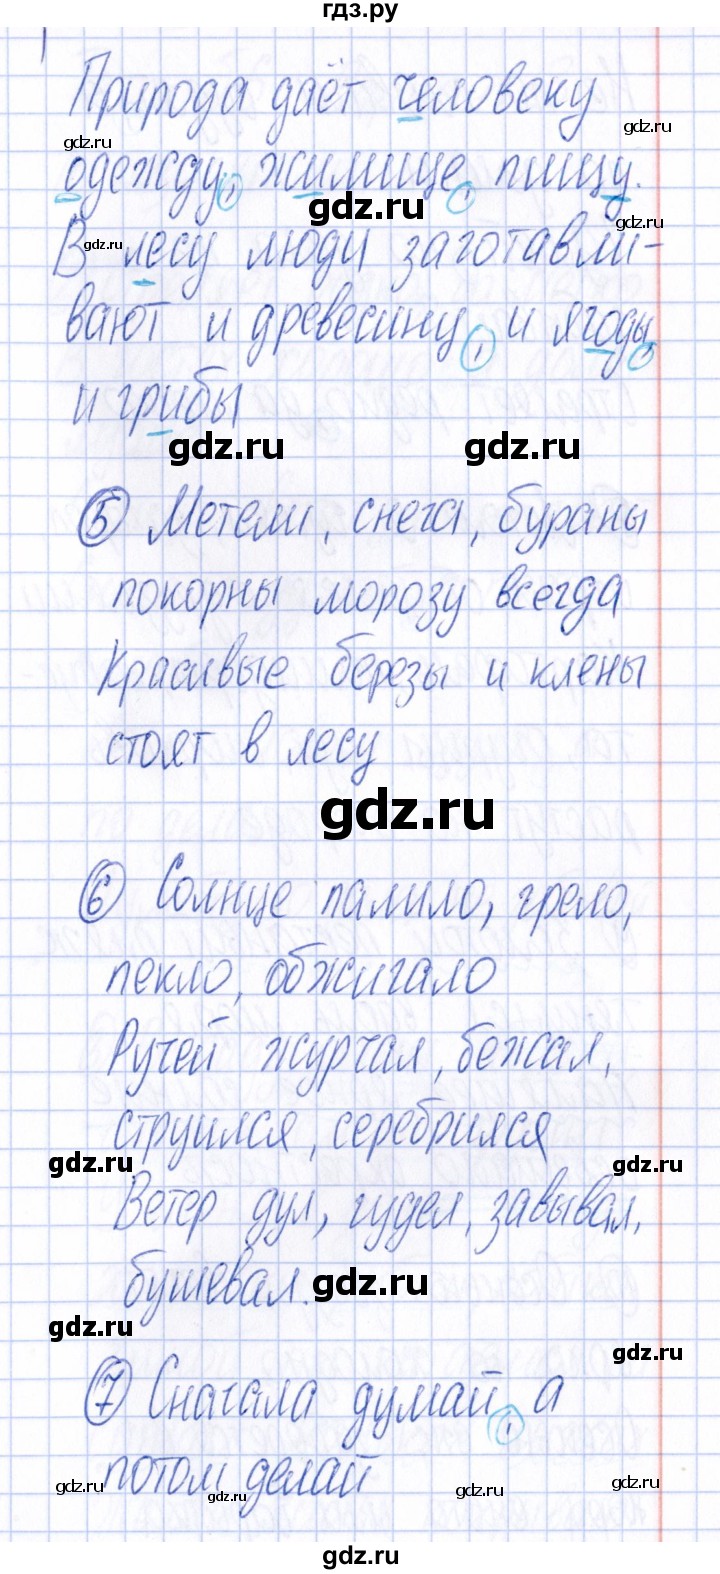 гдз.ру
Природа даёт человеку
gdz.ru
gdz.ru
одежду, жилище, пищу.
gdz.ru
gdz.ru
В лесу люди заготавли-
gdz.ru
вают и древесину, и ягоды,
и грибы
gdz.ru
gdz.ru
5 Метели, снега, бураны
покорны морозу всегда
Красивые березы и клены
стоят в лесу
gdz.ru
6 Солнце палило, грело,
пекло, обжигало
Ручей журчал, бежал,
струился, серебрился
gdz.ru
gdz.ru
Ветер дул, гудел, завывал,
бушевал.
gdz.ru
gdz.ru
gdz.ru
7 Сначала думай, а
потом делай
gdz.ru
gdz.ru
gdz.ru
gdz.ru
gdz.ru